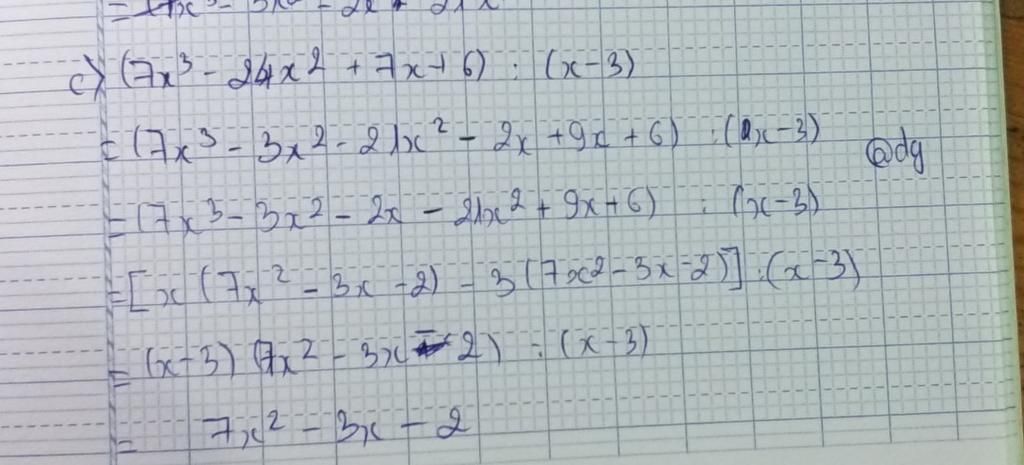 c) (7x³ - 24x² + 7x + 6) : (x - 3)
= (7x³ - 3x² - 21x² - 2x + 9x + 6) : (x - 3)
@dg
= (7x³ - 3x² - 2x - 21x² + 9x + 6) : (x - 3)
= [x (7x² - 3x - 2) - 3 (7x² - 3x - 2)] : (x - 3)
= (x - 3) (7x² - 3x - 2) : (x - 3)
= 7x² - 3x - 2